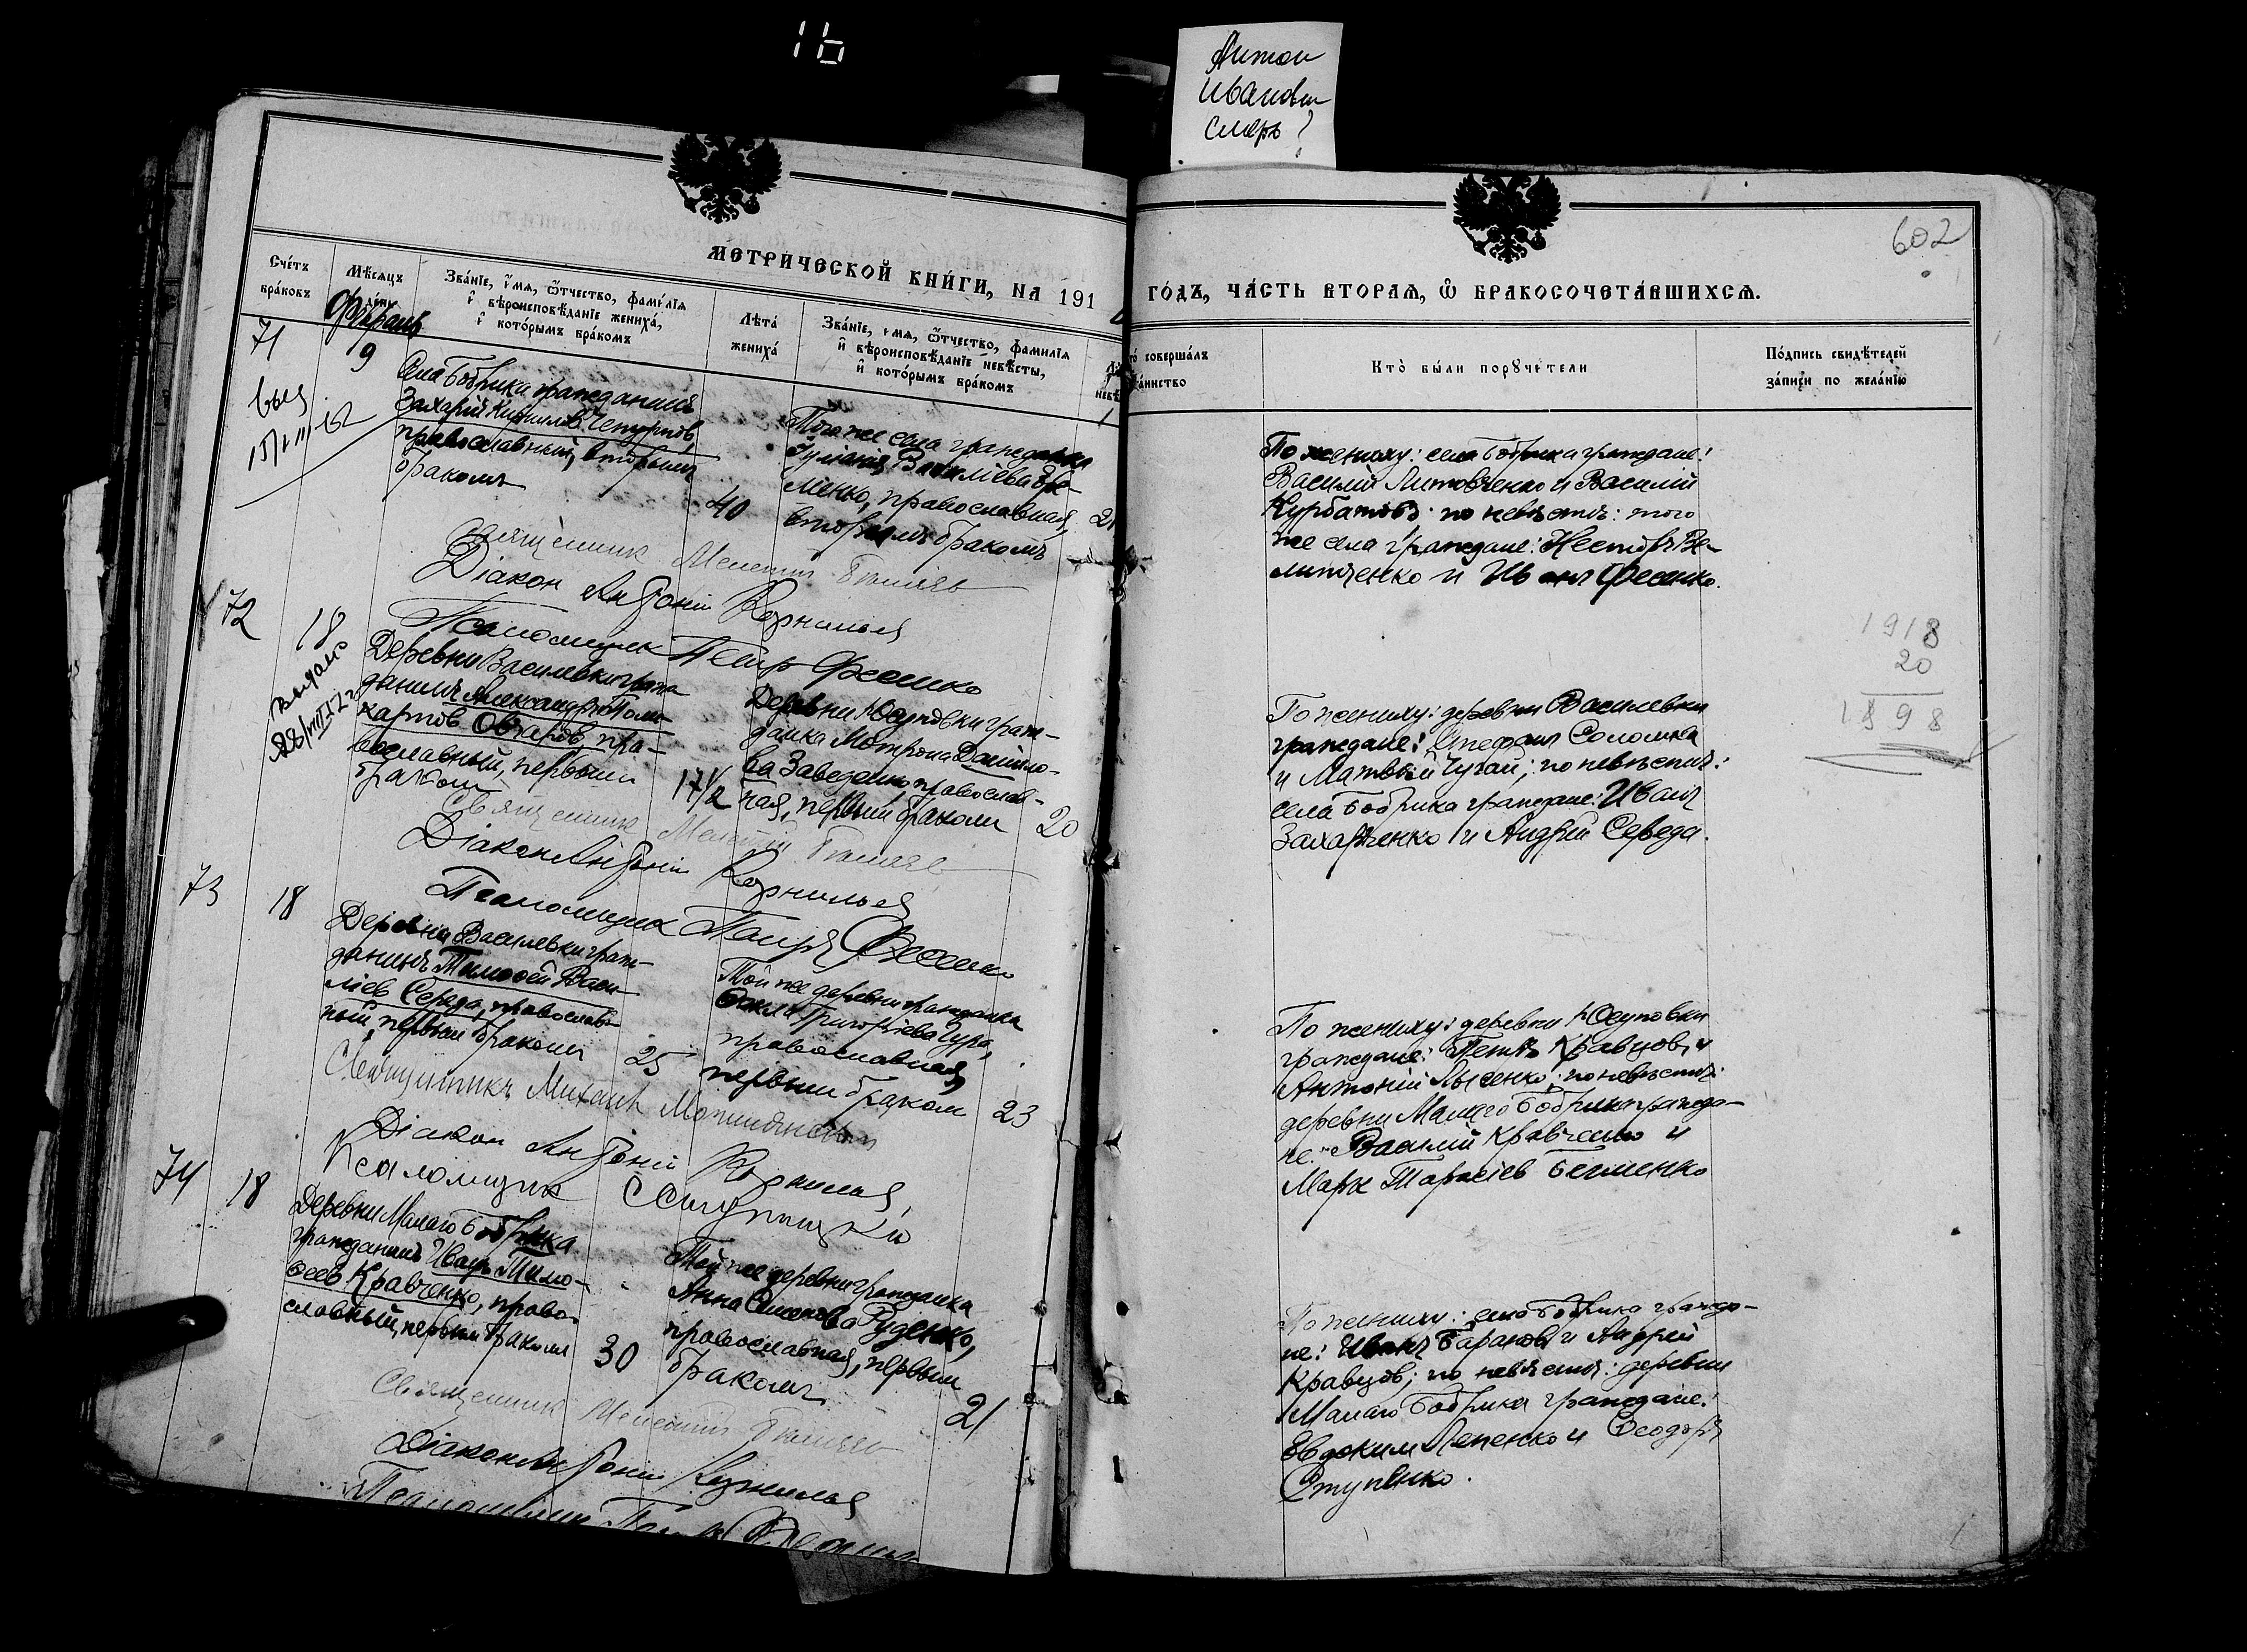 16
Антон
Иванов
602
МЕТРИЧЕСКОЙ КНИГИ, НА 191
ГОДЪ, ЧАСТЬ ВТОРАЯ, Ѿ БРАКОСОЧЕТАВШИХСЯ.
Счетъ браковъ
Мѣсяцъ и день
Званіе, имя, ѿчество, фамилія и вѣроисповѣданіе жениха, и которымъ бракомъ
Лѣта жениха
Званіе, имя, ѿчество, фамилія и вѣроисповѣданіе невѣсты, и которымъ бракомъ
совершалъ таинство
Кто были поручители
Подпись свидѣтелей записи по желанію
71
9
Села Бобрика гражданинъ
Захарій Кириллов
православный, вторымъ
бракомъ
40
Того же села гражданка
Васильева
ленко, православная,
вторымъ бракомъ
21
Священник Мелетій
Діакон Антоній Корнилья
Псаломщик Петр Фесенко
По жениху: села Бобрика граждане:
Василій Литовченко и Василій
Курбатовъ; по невѣстѣ: того
же села граждане: Несторъ Ве-
личенко и Иванъ Фесенко.
72
18
Выдано
Деревни Василевки граж-
данинъ Александръ Поли-
карпов Овчаров, пра-
вославный, первым
браком
17½
Деревни Юсуповки граж-
данка Мотрона Данило-
ва Заведенко, православ-
ная, первым браком
20
Священник Мелетій
Діакон Антоній Корнилья
Псаломщик Петръ Фесенко
По жениху: деревни Василевки
граждане: Стефанъ Соломка
и Матвѣй Чугай; по невѣстѣ:
села Бобрика граждане: Иванъ
Захарченко и Андрей Середа.
1918
20
1898
73
18
Деревни Василевки граж-
данинъ Тимофей Васи-
ліев Середа, православ-
ный, первым браком
25
Той же деревни гражданка
Фекла Григорьева Чура,
православная,
первым браком
23
Священникъ Михаил
Діакон Антоній Корнилья
Псаломщик
По жениху: деревни Юсуповки
граждане: Петръ Кравцов и
Антоній Лысенко; по невѣстѣ:
деревни Малаго Бобрика гражда-
не: Василій Кравченко и
Марк Тарасіев
74
18
Деревни Малаго Бобрика
гражданинъ Иванъ Тимо-
феев Кравченко, право-
славный, первым браком
30
Той же деревни гражданка
Анна Руденко,
православная, первым
браком
21
Священник Мелетій
Діакон Антоній Корнилья
Псаломщик Петр Фесенко
По жениху: села Бобрика гражда-
не: Иванъ Баранов и Андрей
Кравцов; по невѣстѣ: деревни
Малаго Бобрика граждане:
Евдоким Лепенко и Феодоръ
Ступенко.